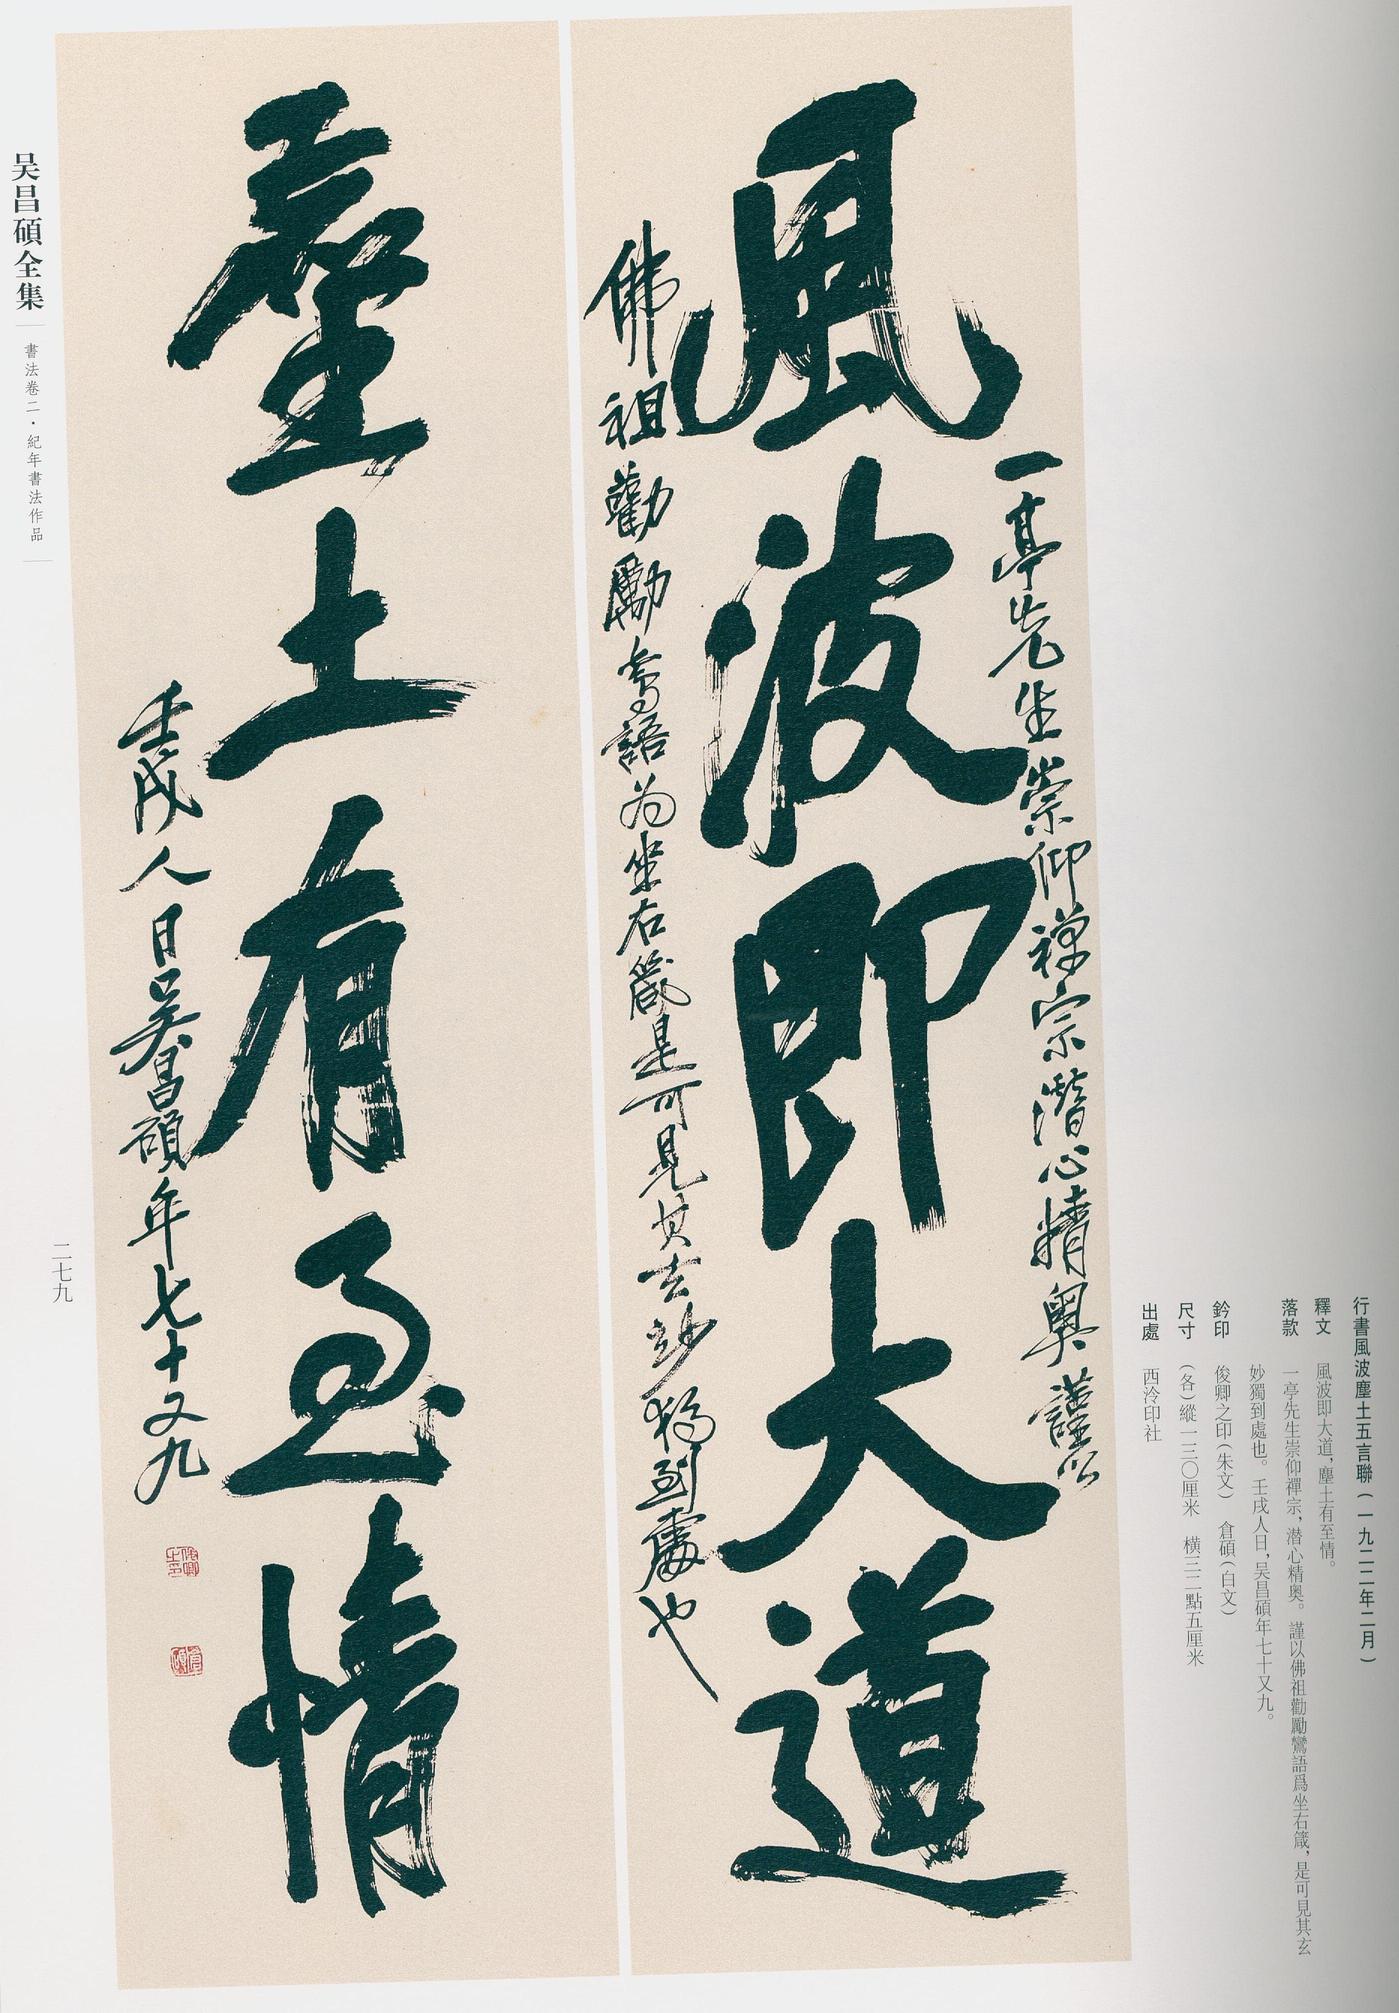 行書風波塵土五言聯（一九二二年二月）
釋文　風波即大道，塵土有至情。
落款　一亭先生崇仰禪宗，潜心精奥。謹以佛祖勸勵鸞語爲坐右箴，是可見其玄
妙獨到處也。壬戌人日，吴昌碩年七十又九。
鈐印　俊卿之印（朱文）　倉碩（白文）
尺寸　（各）縱一三〇厘米　横三二點五厘米
出處　西泠印社
一亭先生崇仰禪宗潛心精奥謹以
風波即大道
佛祖勸勵鸞語為坐右箴是可見其玄妙獨到處也
塵土有至情
壬戌人日吴昌碩年七十又九
俊卿之印
倉碩
吴昌碩全集
書法卷二·紀年書法作品
二七九